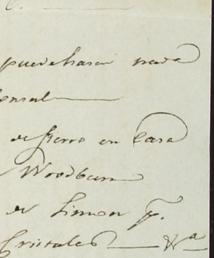 puede hacer nada
de fierro en Casa
Woodburn
de Simon y.
Cristales